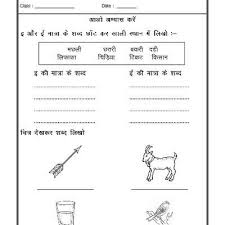 Class : Date :
आओ अभ्यास करें
इ और ई मात्रा के शब्द छाँट कर खाली स्थान में लिखो :-
मछली छतरी बकरी दही
लिफाफा चिड़िया टिकट किसान
इ की मात्रा के शब्द ई की मात्रा के शब्द
चित्र देखकर शब्द लिखो